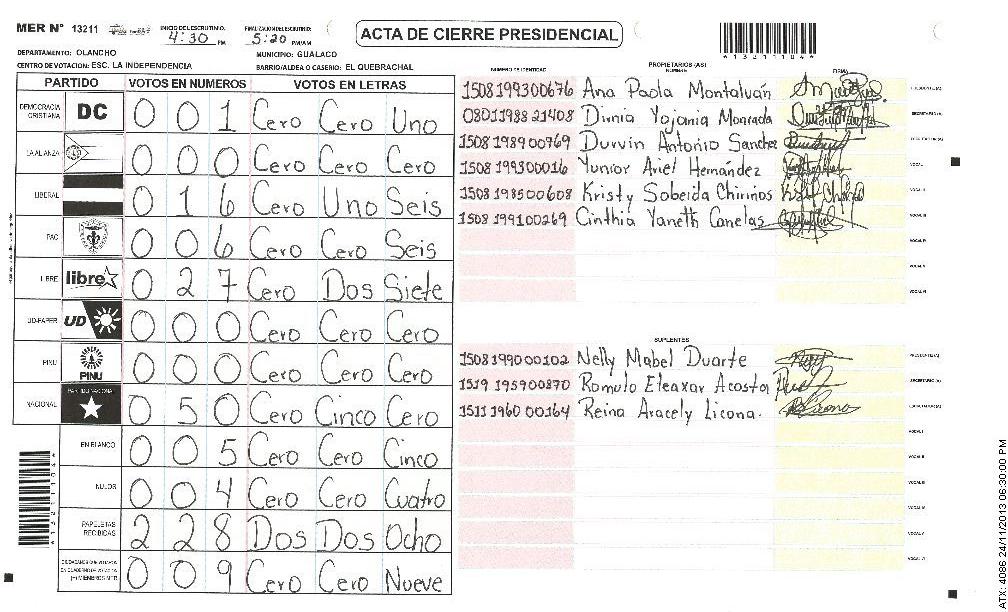 MER N° 13211 INICIO DE ESCRUTINIO: 4:30 PM FINALIZACION ESCRUTINIO: 5:20 PM/AM ACTA DE CIERRE PRESIDENCIAL
DEPARTAMENTO: OLANCHO MUNICIPIO: GUALACO
CENTRO DE VOTACION: ESC. LA INDEPENDENCIA BARRIO/ALDEA O CASERIO: EL QUEBRACHAL
*1321111044*
PARTIDO VOTOS EN NUMEROS VOTOS EN LETRAS
DEMOCRACIA CRISTIANA DC 0 0 1 Cero Cero Uno
LA ALANZA 0 0 0 Cero Cero Cero
LIBERAL 0 1 6 Cero Uno Seis
PAC 0 0 6 Cero Cero Seis
LIBRE libre 0 2 7 Cero Dos Siete
UD-FAPER UD 0 0 0 Cero Cero Cero
PINU PINU 0 0 0 Cero Cero Cero
NACIONAL PARTIDO NACIONAL 0 5 0 Cero Cinco Cero
EN BLANCO 0 0 5 Cero Cero Cinco
NULOS 0 0 4 Cero Cero Cuatro
PAPELETAS RECIBIDAS 2 2 8 Dos Dos Ocho
(+) MIEMBROS MER 0 0 9 Cero Cero Nueve
PROPIETARIOS (AS)
NUMERO DE IDENTIDAD NOMBRE FIRMA
1508199300676 Ana Paola Montalván PRESIDENTE(A)
0801198821408 Dirnia Yojania Moncada SECRETARIO(A)
1508198900769 Durvin Antonio Sanchez ESCRUTADOR(A)
1508199300016 Yunior Ariel Hernández VOCAL I
1508198500608 Kristy Sobeida Chirinos VOCAL II
1508199100269 Cinthia Yaneth Canelas VOCAL III
VOCAL IV
VOCAL V
VOCAL VI
SUPLENTES
1508199000102 Nelly Mabel Duarte PRESIDENTE(A)
1519195900870 Romulo Eleaxar Acosta SECRETARIO(A)
1511196000164 Reina Aracely Licona. ESCRUTADOR(A)
VOCAL I
VOCAL II
VOCAL III
VOCAL IV
VOCAL V
VOCAL VI
ATX: 4086 24/11/2013 06:30:00 PM